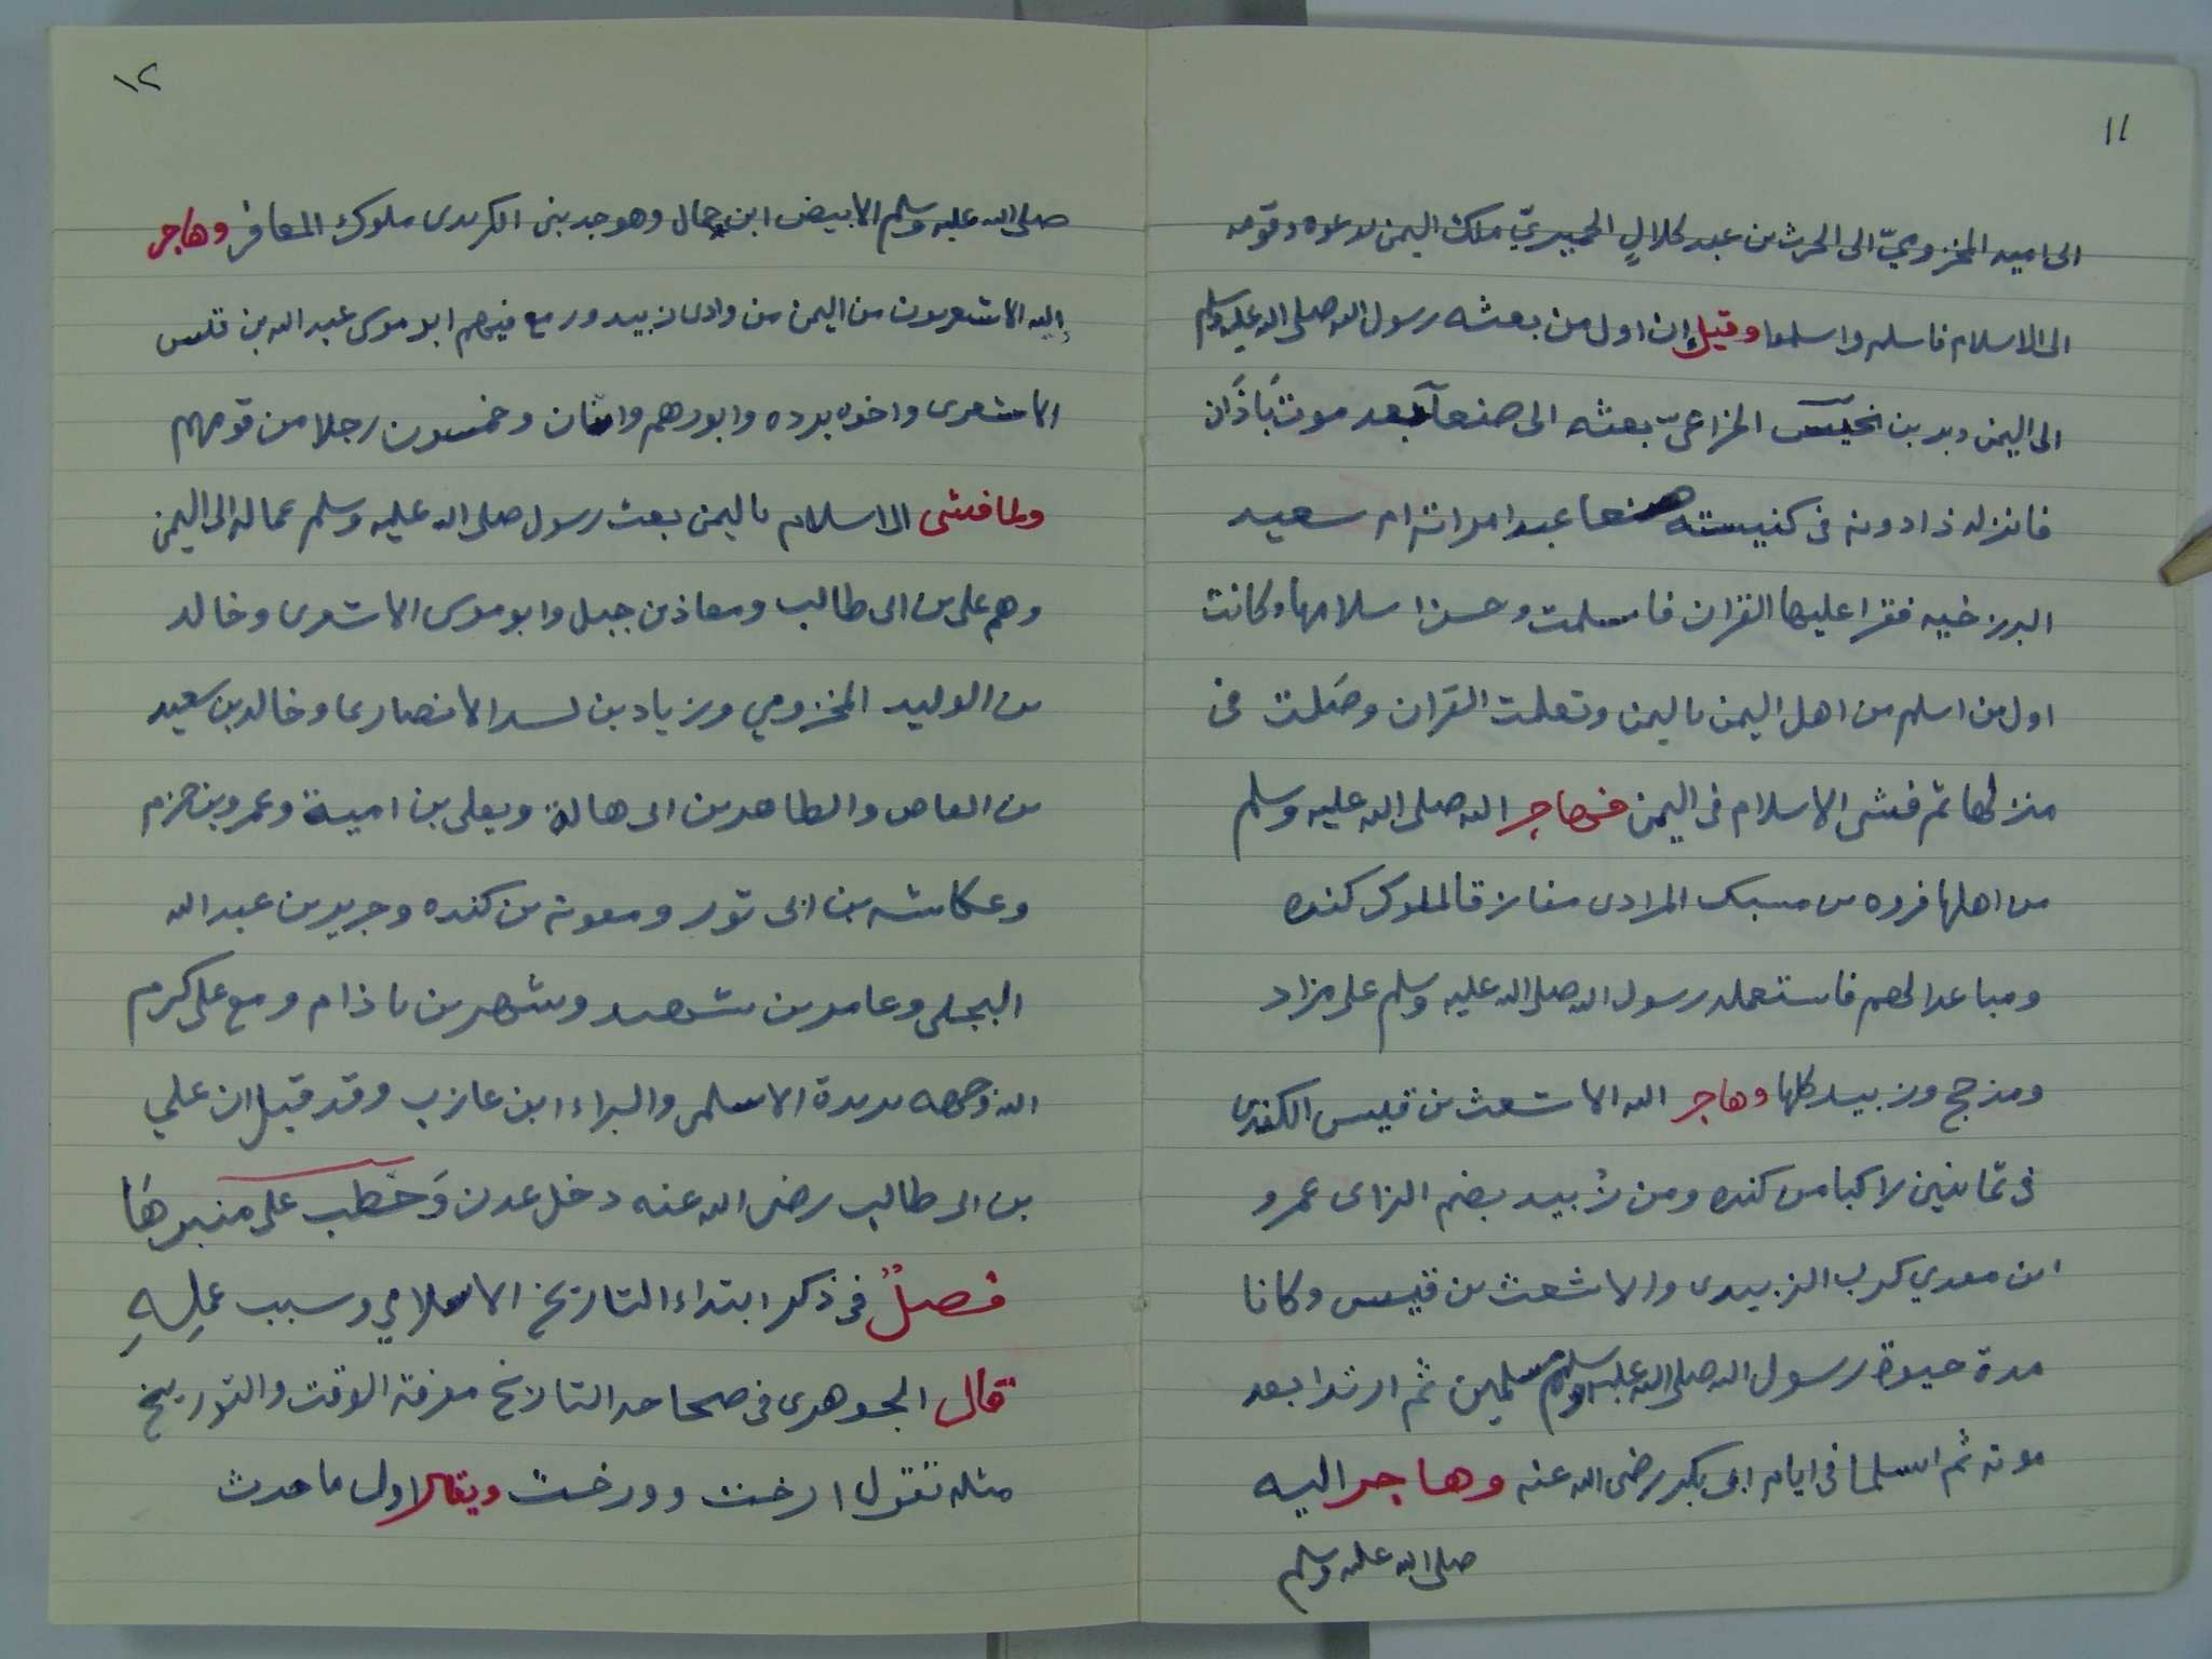 ١١
الى اميه المخزوميّ الى الحرث بن عبد كلالٍ الحميريّ ملك اليمن لدعوه وقومه
الى الاسلام فاسلم واسلموا وقيل إن اول من بعثه رسول الله صلى الله عليه وسلم
الى اليمن وبر بن نحيس الخزاعىّ بعثه الى صنعآ بعد موت بَاذَان
فانزله ذادونه فى كنيسته صنعا عبدا مراته ام سعيد
البرزخيه فقرا عليها القران فاسلمت وحسن اسلامها وكانت
اول من اسلم من اهل اليمن باليمن وتعلمت القران وصَلت فى
منزلها ثم فشى الاسلام فى اليمن فهاجر اله صلى الله عليه وسلم
من اهلها فروه بن مسيك المرادى مفارقا لملوك كنده
ومباعدا لهم فاستعمله رسول الله صلى الله عليه وسلم على مراد
ومذحج وزبيد كلها وهاجر اله الاشعث بن قيس الكندى
فى ثمانين راكبا من كنده ومن زُبيد بضم الزاى عمرو
ابن معدي كرب الزبيدى والاشعث بن قيس وكانا
مدة حيوة رسول الله صلى الله عليه وسلم مسلمين ثم ارتدا بعد
موته ثم اسلما فى ايام ابى بكر رضى الله عنه وهاجر اليه
صلى الله عليه وسلم
١٢
صلى الله عليه وسلم الابيض ابن حمال وهو جد بنى الكرندى ملوك المعافر وهاجر
إليه الاشعريون من اليمن من وادى زبيد ورمع فيهم ابو موسى عبد الله بن قيس
الاشعرى واخوه برده وابو رهم واثنان وخمسون رجلا من قومهم
ولما فشى الاسلام باليمن بعث رسول صلى الله عليه وسلم عماله الى اليمن
وهم على بن ابى طالب ومعاذ بن جبل وابو موسى الاشعرى وخالد
بن الوليد المخزومي وزياد بن لبيد الانصارى وخالد بن سعيد
بن العاص والطاهر بن ابى هالة ويعلى بن امية وعمرو بن حزم
وعكاشه بن ابى ثور ومعوية بن كنده وجرير بن عبد الله
البجلى وعامر بن شهر وشهر بن باذام ومع على كرم
الله وجهه بريدة الاسلمى والبراء ابن عازب وقد قيل ان علي
بن ابى طالب رضى الله عنه دخل عدن وَخطب على منبرهَا
فصلٌ فى ذكر ابتداء التاريخ الاسلامي وسبب عمِلِهِ
قال الجوهرى فى صحاحه التاريخ معرفة الوقت والتوريخ
مثله تقول ارخت وورخت ويقال لاول ما حدث